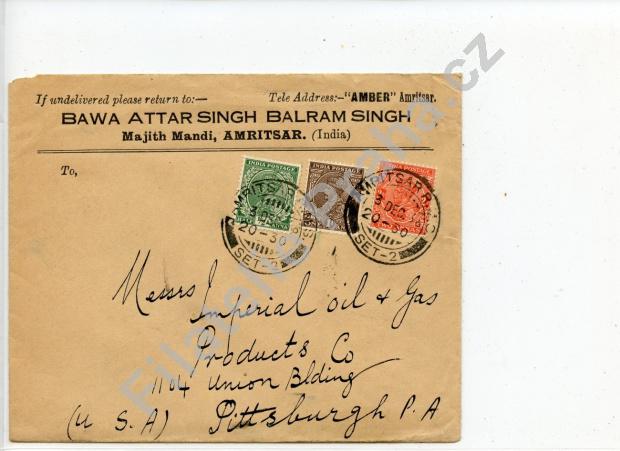 If undelivered please return to:— Tele Address:-"AMBER" Amritsar.
BAWA ATTAR SINGH BALRAM SINGH
Majith Mandi, AMRITSAR. (India)
To,
INDIA POSTAGE INDIA POSTAGE INDIA POSTAGE
AMRITSAR R.M.S
3 DEC
20-30
SET-2
AMRITSAR R.M.S
3 DEC 36
20-30
SET-2
Messrs Imperial oil & Gas
Products Co
1104 Union Blding
(U S A) Pittsburgh P. A
Filatelie Praha.cz